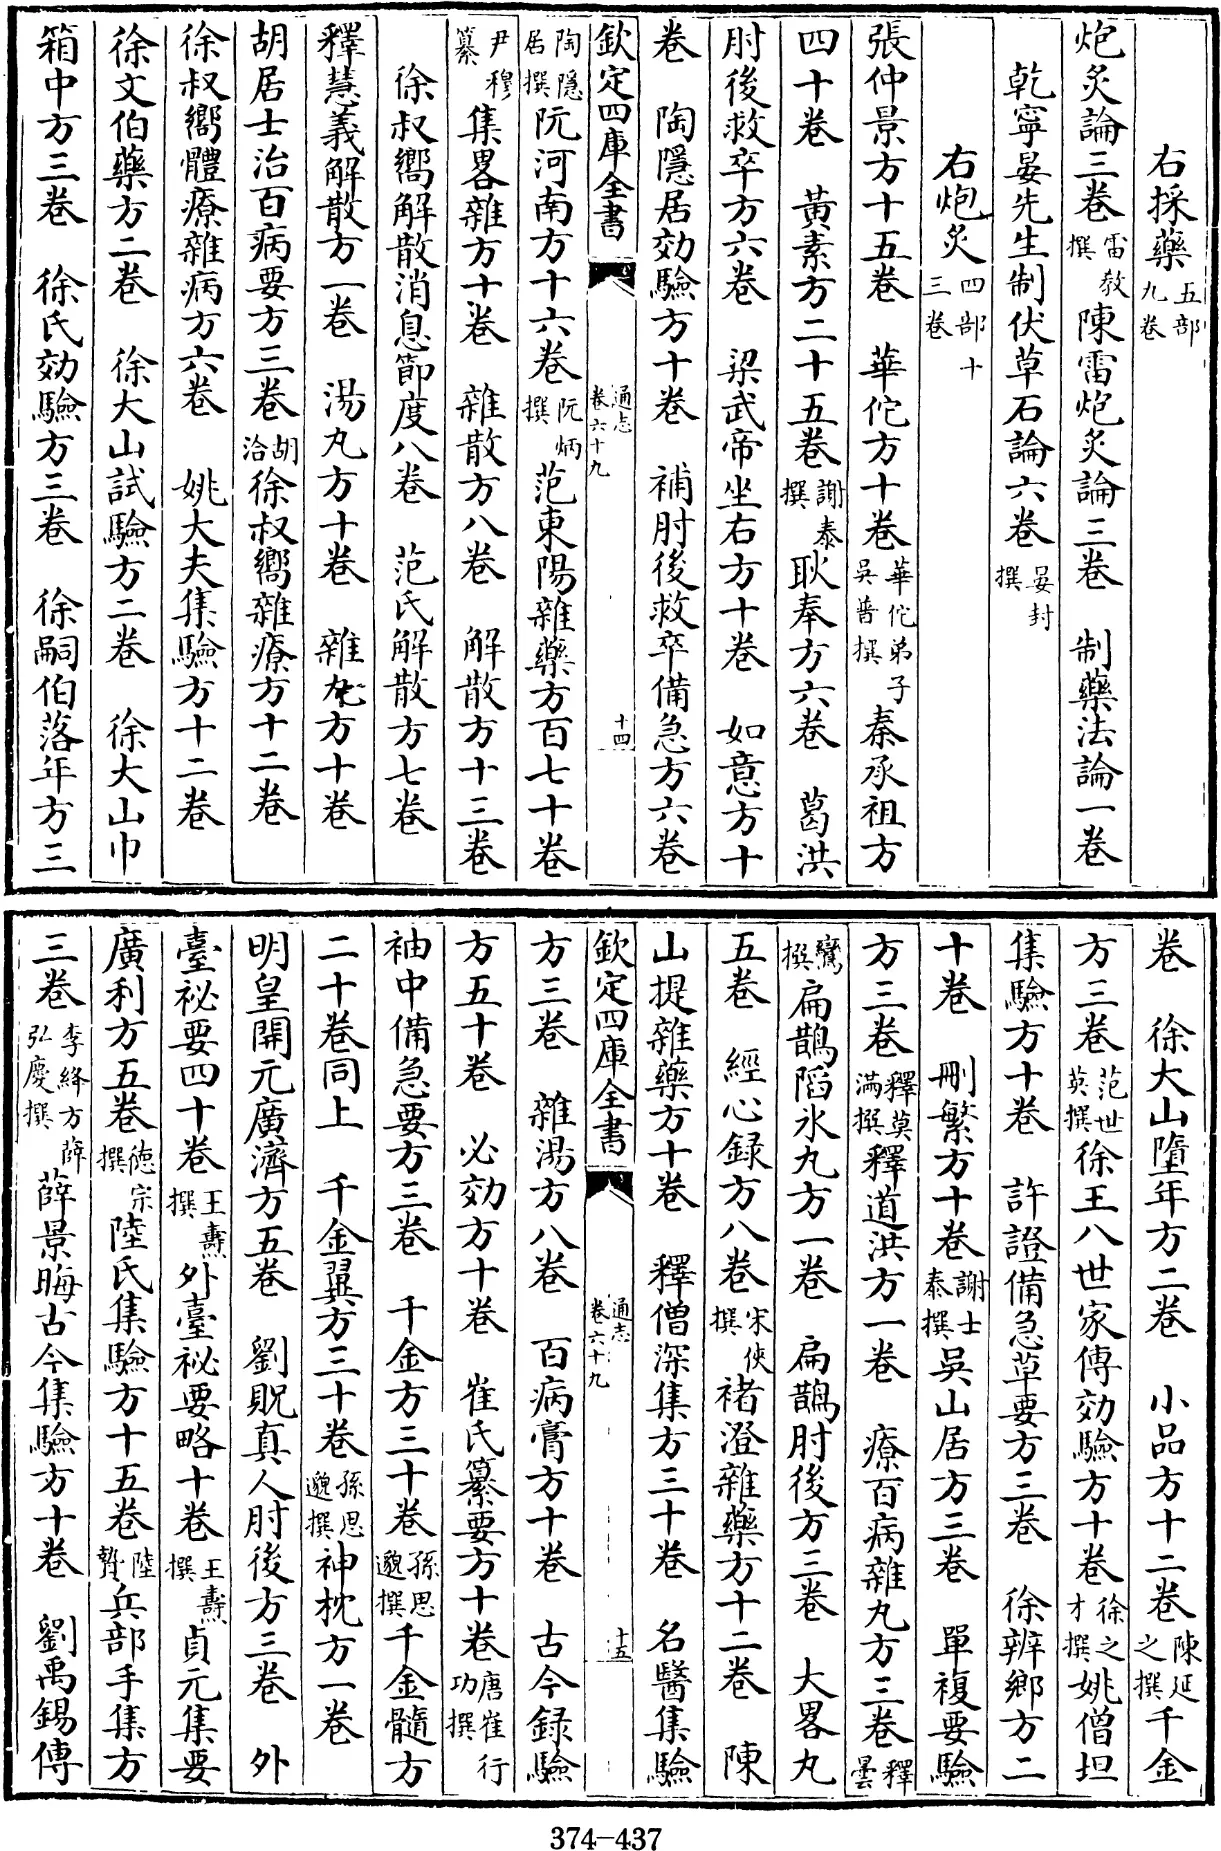 右採藥五部九卷
炮炙論三卷雷斆撰陳雷炮炙論三卷　制藥法論一卷
乾寧晏先生制伏草石論六卷晏封撰
右炮炙四部十三卷
張仲景方十五卷　華佗方十卷華佗弟子吳普撰秦承祖方
四十卷　黃素方二十五卷謝泰撰耿奉方六卷　葛洪
肘後救卒方六卷　梁武帝坐右方十卷　如意方十
卷　陶隱居効驗方十卷　補肘後救卒備急方六卷
欽定四庫全書　通志卷六十九　十四
陶隱居撰阮河南方十六卷阮炳撰范東陽雜藥方百七十卷
尹穆纂集畧雜方十卷　雜散方八卷　解散方十三卷
徐叔嚮解散消息節度八卷　范氏解散方七卷
釋慧義解散方一卷　湯丸方十卷　雜丸方十卷
胡居士治百病要方三卷胡洽徐叔嚮雜療方十二卷
徐叔嚮體療雜病方六卷　姚大夫集驗方十二卷
徐文伯藥方二卷　徐大山試驗方二卷　徐大山巾
箱中方三卷　徐氏効驗方三卷　徐嗣伯落年方三
卷　徐大山墮年方二卷　小品方十二卷陳延之撰千金
方三卷范世英撰徐王八世家傳効驗方十卷徐之才撰姚僧坦
集驗方十卷　許證備急草要方三卷　徐辨鄉方二
十卷　刪繁方十卷謝士泰撰吳山居方三卷　單複要驗
方三卷釋莫滿撰釋道洪方一卷　療百病雜丸方三卷釋曇
鸞撰扁鵲陷氷丸方一卷　扁鵲肘後方三卷　大畧丸
五卷　經心録方八卷宋俠撰褚澄雜藥方十二卷　陳
山提雜藥方十卷　釋僧深集方三十卷　名醫集驗
欽定四庫全書　通志卷六十九　十五
方三卷　雜湯方八卷　百病膏方十卷　古今録驗
方五十卷　必効方十卷　崔氏纂要方十卷唐崔行功撰
袖中備急要方三卷　千金方三十卷孫思邈撰千金髓方
二十卷同上　千金翼方三十卷孫思邈撰神枕方一卷
明皇開元廣濟方五卷　劉貺真人肘後方三卷　外
臺祕要四十卷王燾撰外臺祕要略十卷王燾撰貞元集要
廣利方五卷德宗撰陸氏集驗方十五卷陸贄兵部手集方
三卷李絳方薛弘慶撰薛景晦古今集驗方十卷　劉禹錫傳
374-437